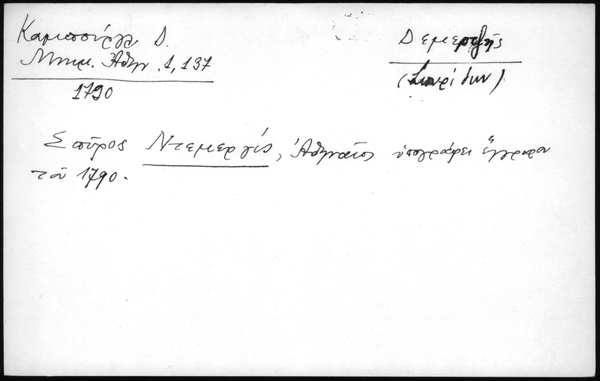 Καμπούρλ Δ.
Μνημ. Αθην. 1, 137
1790
Δεμερτζής
(Σπυρίδων)
Σπῦρος Ντεμερζίς, Ἀθηναῖος ὑπογράφει ἔγγραφον
τοῦ 1790.